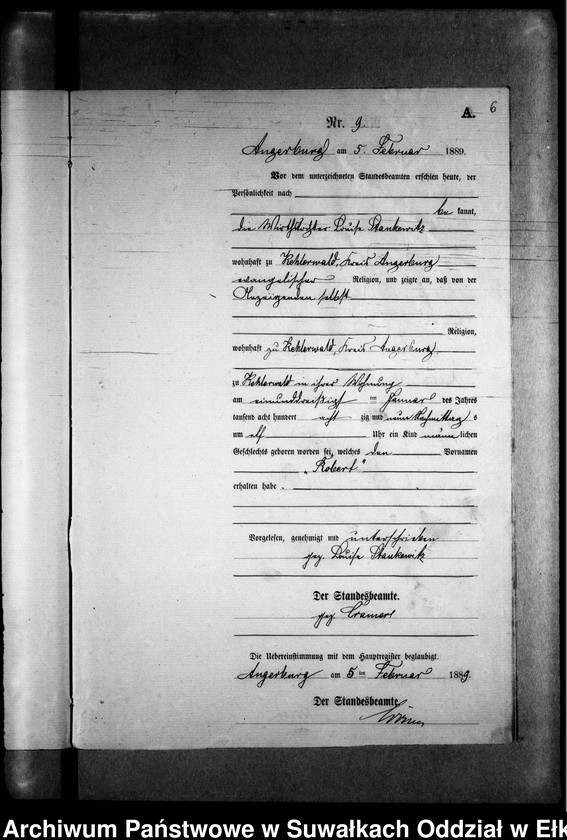 6
A.
Nr. 9.
Angerburg am 5. Februar 1889.
Vor dem unterzeichneten Standesbeamten erschien heute, der
Persönlichkeit nach
be kannt,
die Wirthstochter Louise Stankewitz
wohnhaft zu Kehlerwald, Kreis Angerburg
evangelischer Religion, und zeigte an, daß von der
Anzeigenden selbst
Religion,
wohnhaft zu Kehlerwald, Kreis Angerburg
zu Kehlerwald in ihrer Wohnung
am einunddreißigst ten Januar des Jahres
tausend acht hundert acht zig und neun Nachmittag s
um elf Uhr ein Kind männ lichen
Geschlechts geboren worden sei, welches den Vornamen
„Robert"
erhalten habe.
Vorgelesen, genehmigt und unterschrieben
gez. Louise Stankewitz
Der Standesbeamte.
gez. Cramer
Die Uebereinstimmung mit dem Hauptregister beglaubigt.
Angerburg am 5 ten Februar 1889.
Der Standesbeamte.
Archiwum Państwowe w Suwałkach Oddział w Ełk